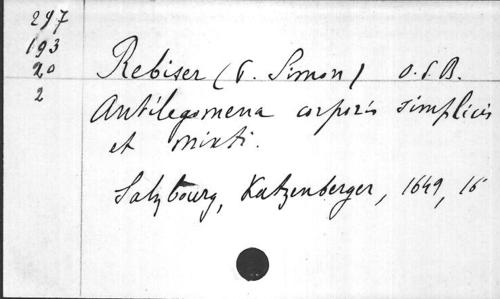 297
193
20
2
Rebiser (P. Simon) O.S.B.
Antilegomena corporis simplicis
et mixti.
Salzbourg, Katzenberger, 1649, 16°